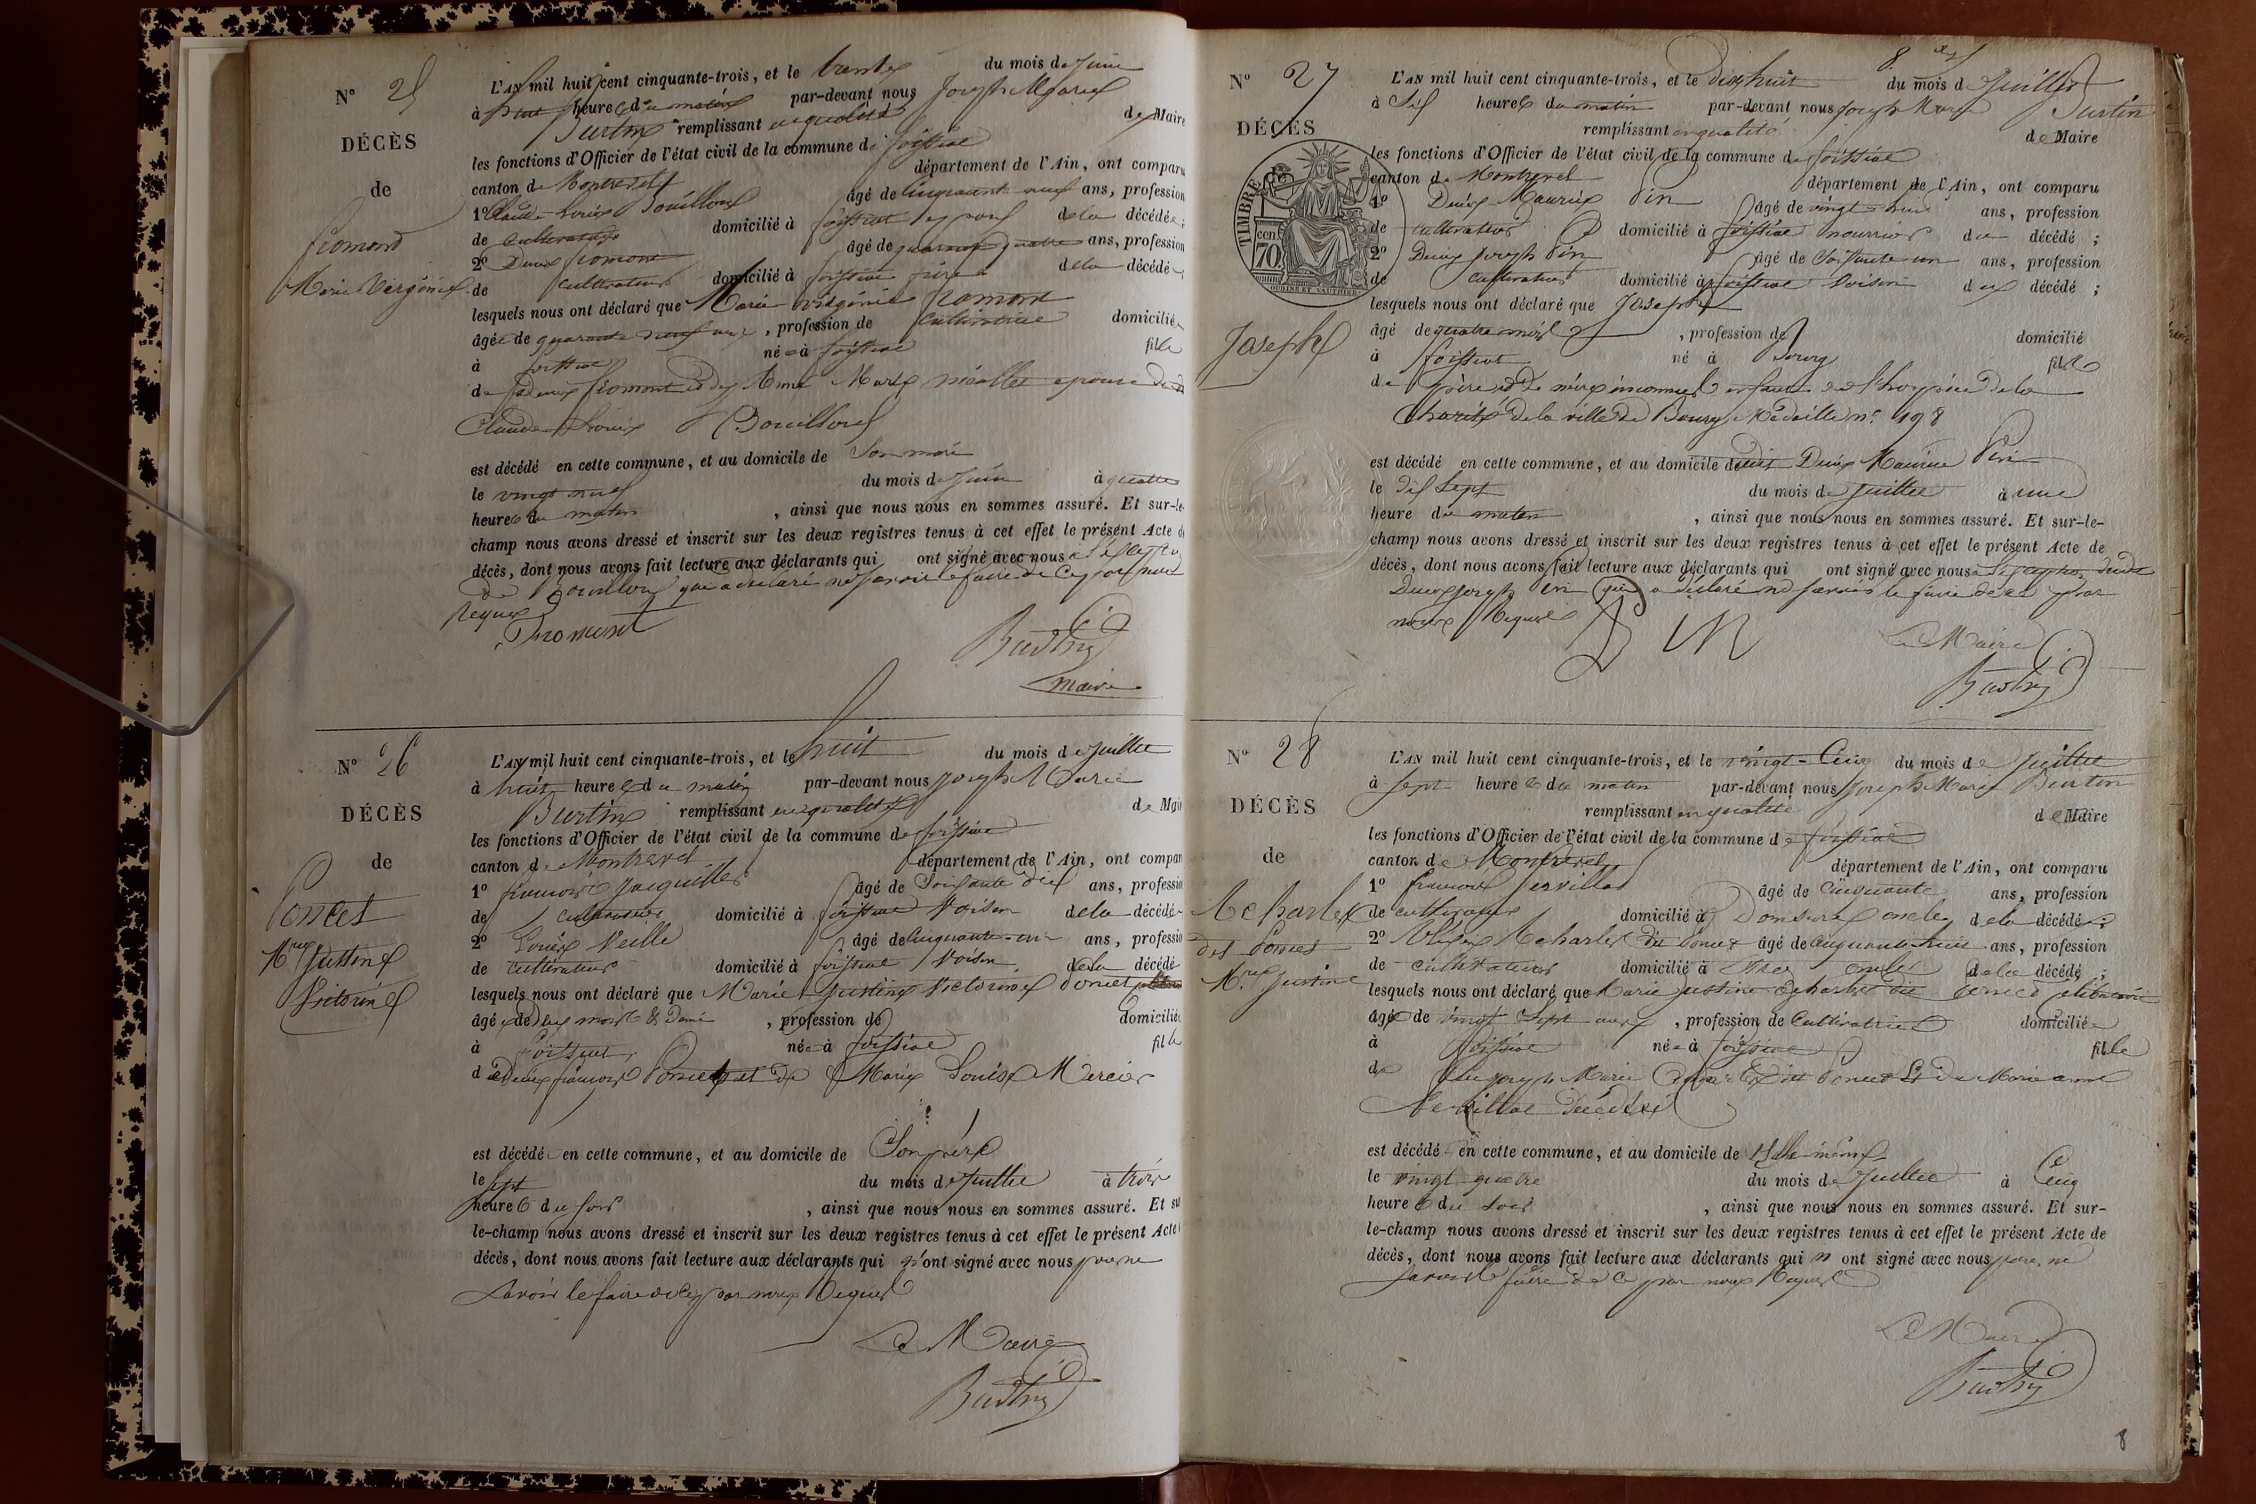 N° 25
DÉCÈS
de
Fromont
Marie Virginie
L'AN mil huit cent cinquante-trois, et le trente du mois de Juin
à huit heures du matin par-devant nous Joseph Marie
Burtin remplissant en qualité de Maire
les fonctions d'Officier de l'état civil de la commune de foissiat
canton de Montrevel département de l'Ain, ont comparu
1° Claude Louis Bouilloud âgé de cinquante neuf ans, profession
de cultivateur domicilié à foissiat époux de la décédée ;
2° Denis fromont âgé de quarante quatre ans, profession
de cultivateur domicilié à foissiat frère de la décédée ;
lesquels nous ont déclaré que Marie Virginie fromont
âgée de quarante neuf ans, profession de cultivatrice domiciliée
à foissiat née à foissiat fille
de Denis fromont et de Marie épouse
Claude Louis Bouilloud
est décédé en cette commune, et au domicile de Son mari
le vingt neuf du mois de Juin à quatre
heures du matin, ainsi que nous nous en sommes assuré. Et sur-le-
champ nous avons dressé et inscrit sur les deux registres tenus à cet effet le présent Acte de
décès, dont nous avons fait lecture aux déclarants qui ont signé avec nous
de Bouilloud qui a déclaré ne savoir le faire de ce par nous
Requis
Fromont
Burtin
maire
N° 26
DÉCÈS
de
Poncet
Mie Justine
Victorine
L'AN mil huit cent cinquante-trois, et le huit du mois de Juillet
à huit heures du matin par-devant nous Joseph Marie
Burtin remplissant en qualité de Maire
les fonctions d'Officier de l'état civil de la commune de foissiat
canton de Montrevel département de l'Ain, ont comparu
1° françois Jacquillet âgé de Soixante dix ans, profession
de cultivateur domicilié à foissiat Voisin de la décédée
2° Louis Veille âgé de Cinquante-un ans, profession
de cultivateur domicilié à foissiat Voisin de la décédée
lesquels nous ont déclaré que Marie Justine Victorine Poncet
âgée de Deux mois & Demi, profession de domiciliée
à foissiat née à foissiat fille
de Denis françois Poncet et de Marie Louise Mercier
est décédé en cette commune, et au domicile de Son père
le sept du mois de Juillet à trois
heures du soir, ainsi que nous nous en sommes assuré. Et sur-
le-champ nous avons dressé et inscrit sur les deux registres tenus à cet effet le présent Acte
décès, dont nous avons fait lecture aux déclarants qui n'ont signé avec nous pour ne
savoir le faire de ce par nous Requis
Le Maire
Burtin
N° 27
DÉCÈS
TIMBRE
70
Joseph
L'AN mil huit cent cinquante-trois, et le dix huit du mois de Juillet
à Six heures du matin par-devant nous Joseph Marie Burtin
remplissant en qualité de Maire
les fonctions d'Officier de l'état civil de la commune de foissiat
canton de Montrevel département de l'Ain, ont comparu
1° Denis Maurice Pin âgé de vingt ans, profession
de cultivateur domicilié à foissiat nourricier du décédé ;
2° Denis Joseph Pin âgé de Soixante un ans, profession
de cultivateur domicilié à foissiat Voisin du décédé ;
lesquels nous ont déclaré que Joseph
âgé de quatre mois, profession de domicilié
à foissiat né à Bourg fils
de père et de mère inconnus enfant de l'hospice de la
Charité de la ville de Bourg Médaille n° 198
est décédé en cette commune, et au domicile dudit Denis Maurice Pin
le dix Sept du mois de Juillet à une
heure du matin, ainsi que nous nous en sommes assuré. Et sur-le-
champ nous avons dressé et inscrit sur les deux registres tenus à cet effet le présent Acte de
décès, dont nous avons fait lecture aux déclarants qui ont signé avec nous
Denis Joseph Pin qui a déclaré ne savoir le faire de ce par
nous Requis
Le Maire
Burtin
N° 28
DÉCÈS
de
dit Poncet
Mie Justine
L'AN mil huit cent cinquante-trois, et le vingt-Cinq du mois de Juillet
à Sept heures du matin par-devant nous Joseph Marie Burtin
remplissant en qualité de Maire
les fonctions d'Officier de l'état civil de la commune de foissiat
canton de Montrevel département de l'Ain, ont comparu
1° françois Servillat âgé de Cinquante ans, profession
de cultivateur domicilié à Domsure oncle de la décédée ;
2° dit Poncet âgé de cinquante huit ans, profession
de cultivateur domicilié à oncle de la décédée ;
lesquels nous ont déclaré que Marie Justine dit Poncet célibataire
âgée de vingt Sept ans, profession de Cultivatrice domiciliée
à foissiat née à foissiat fille
de Joseph Marie dit Poncet & de Marie
Servillat Décédés
est décédé en cette commune, et au domicile de Elle-même
le vingt quatre du mois de Juillet à Cinq
heures du soir, ainsi que nous nous en sommes assuré. Et sur-
le-champ nous avons dressé et inscrit sur les deux registres tenus à cet effet le présent Acte de
décès, dont nous avons fait lecture aux déclarants qui n'ont signé avec nous pour ne
savoir le faire de ce par nous Requis
Le Maire
Burtin
8